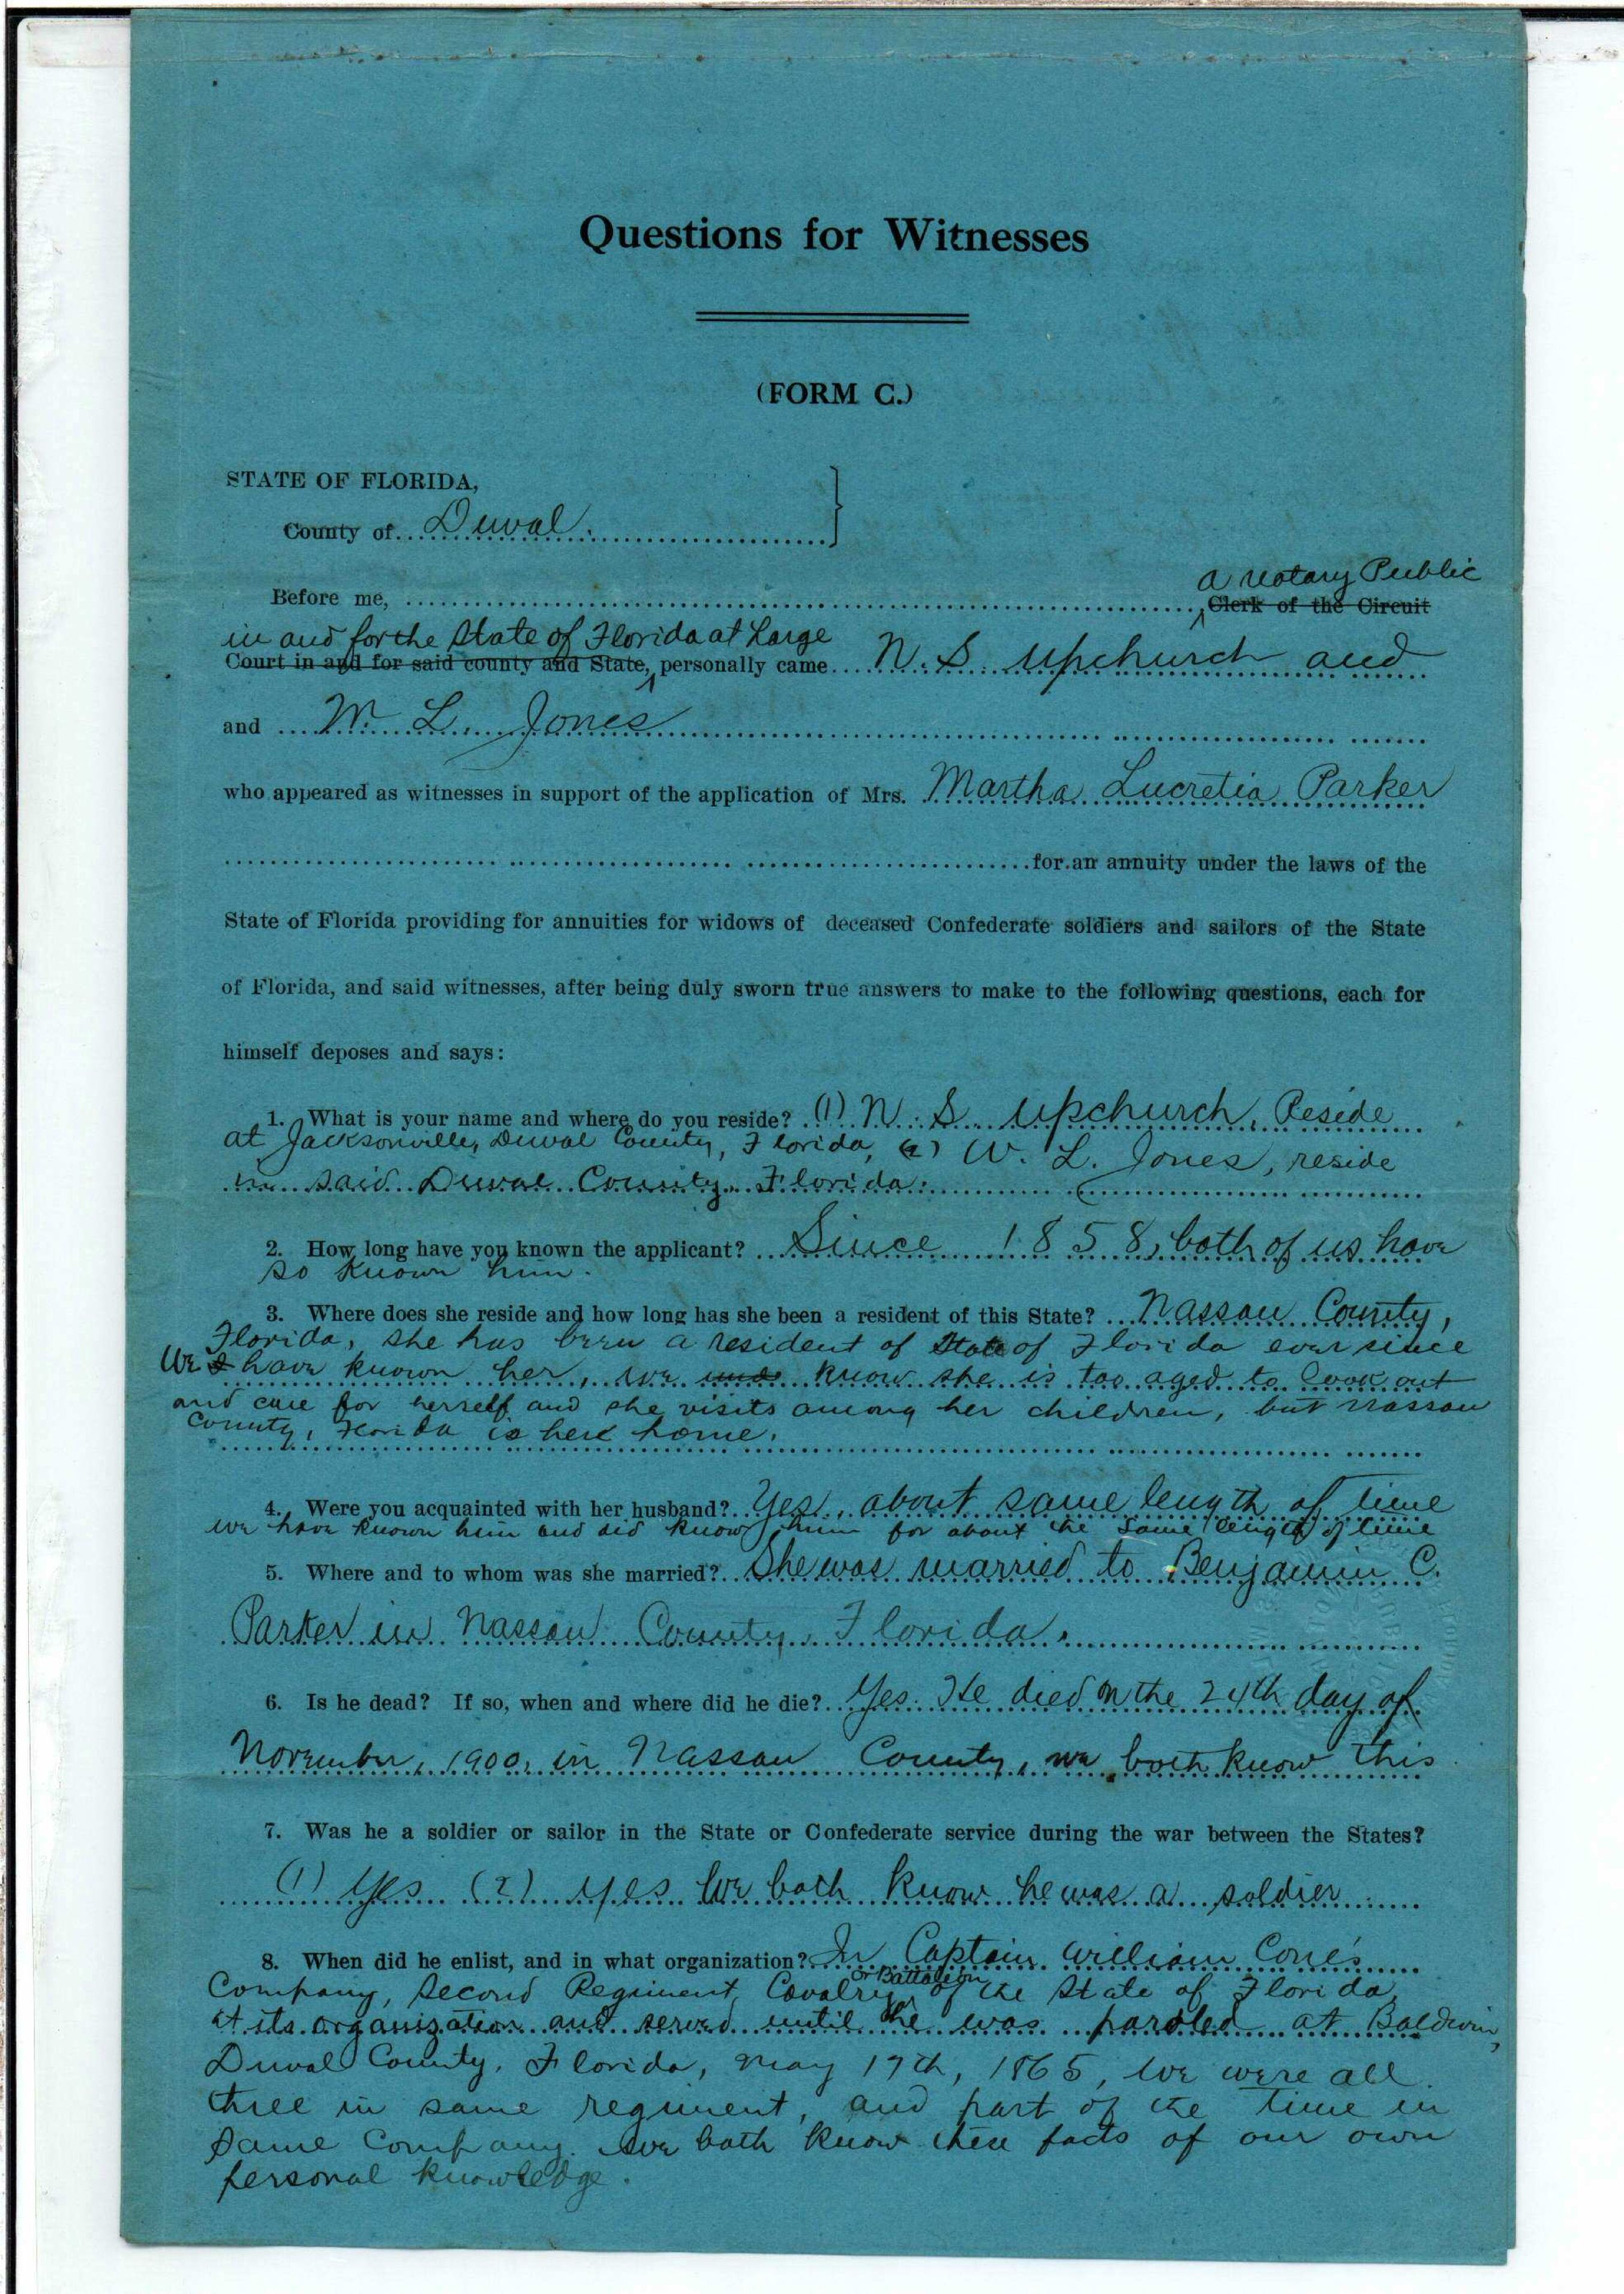 Questions for Witnesses
(FORM C.)
STATE OF FLORIDA,
County of Duval.
a Notary Public
Before me, Clerk of the Circuit
in and for the State of Florida at Large
Court in and for said county and State, personally came N. S. Upchurch and
and W. L. Jones
who appeared as witnesses in support of the application of Mrs. Martha Lucretia Parker
for an annuity under the laws of the
State of Florida providing for annuities for widows of deceased Confederate soldiers and sailors of the State
of Florida, and said witnesses, after being duly sworn true answers to make to the following questions, each for
himself deposes and says:
1. What is your name and where do you reside? (1) N. S. Upchurch, Reside
at Jacksonville, Duval County, Florida, (2) W. L. Jones, reside
in said Duval County, Florida.
2. How long have you known the applicant? Since 1858, both of us have
so known him.
3. Where does she reside and how long has she been a resident of this State? Nassau County,
Florida, she has been a resident of State of Florida ever since
We I have known her, we know she is too aged to look out
and care for herself and she visits among her children, but Nassau
County, Florida is her home.
4. Were you acquainted with her husband? Yes, about same length of time
we have known him and did know him for about the same length of time
5. Where and to whom was she married? She was married to Benjamin C.
Parker in Nassau County, Florida.
6. Is he dead? If so, when and where did he die? Yes. He died on the 24th day of
November, 1900, in Nassau County, we both know this
7. Was he a soldier or sailor in the State or Confederate service during the war between the States?
(1) Yes (2) Yes We both know he was a soldier
8. When did he enlist, and in what organization? In Captain William Cone's
or Battalion
Company, Second Regiment, Cavalry, of the State of Florida,
at its organization and served until he was paroled at Baldwin,
Duval County, Florida, May 17th, 1865, We were all
three in same regiment, and part of the time in
same Company. We both know these facts of our own
personal knowledge.